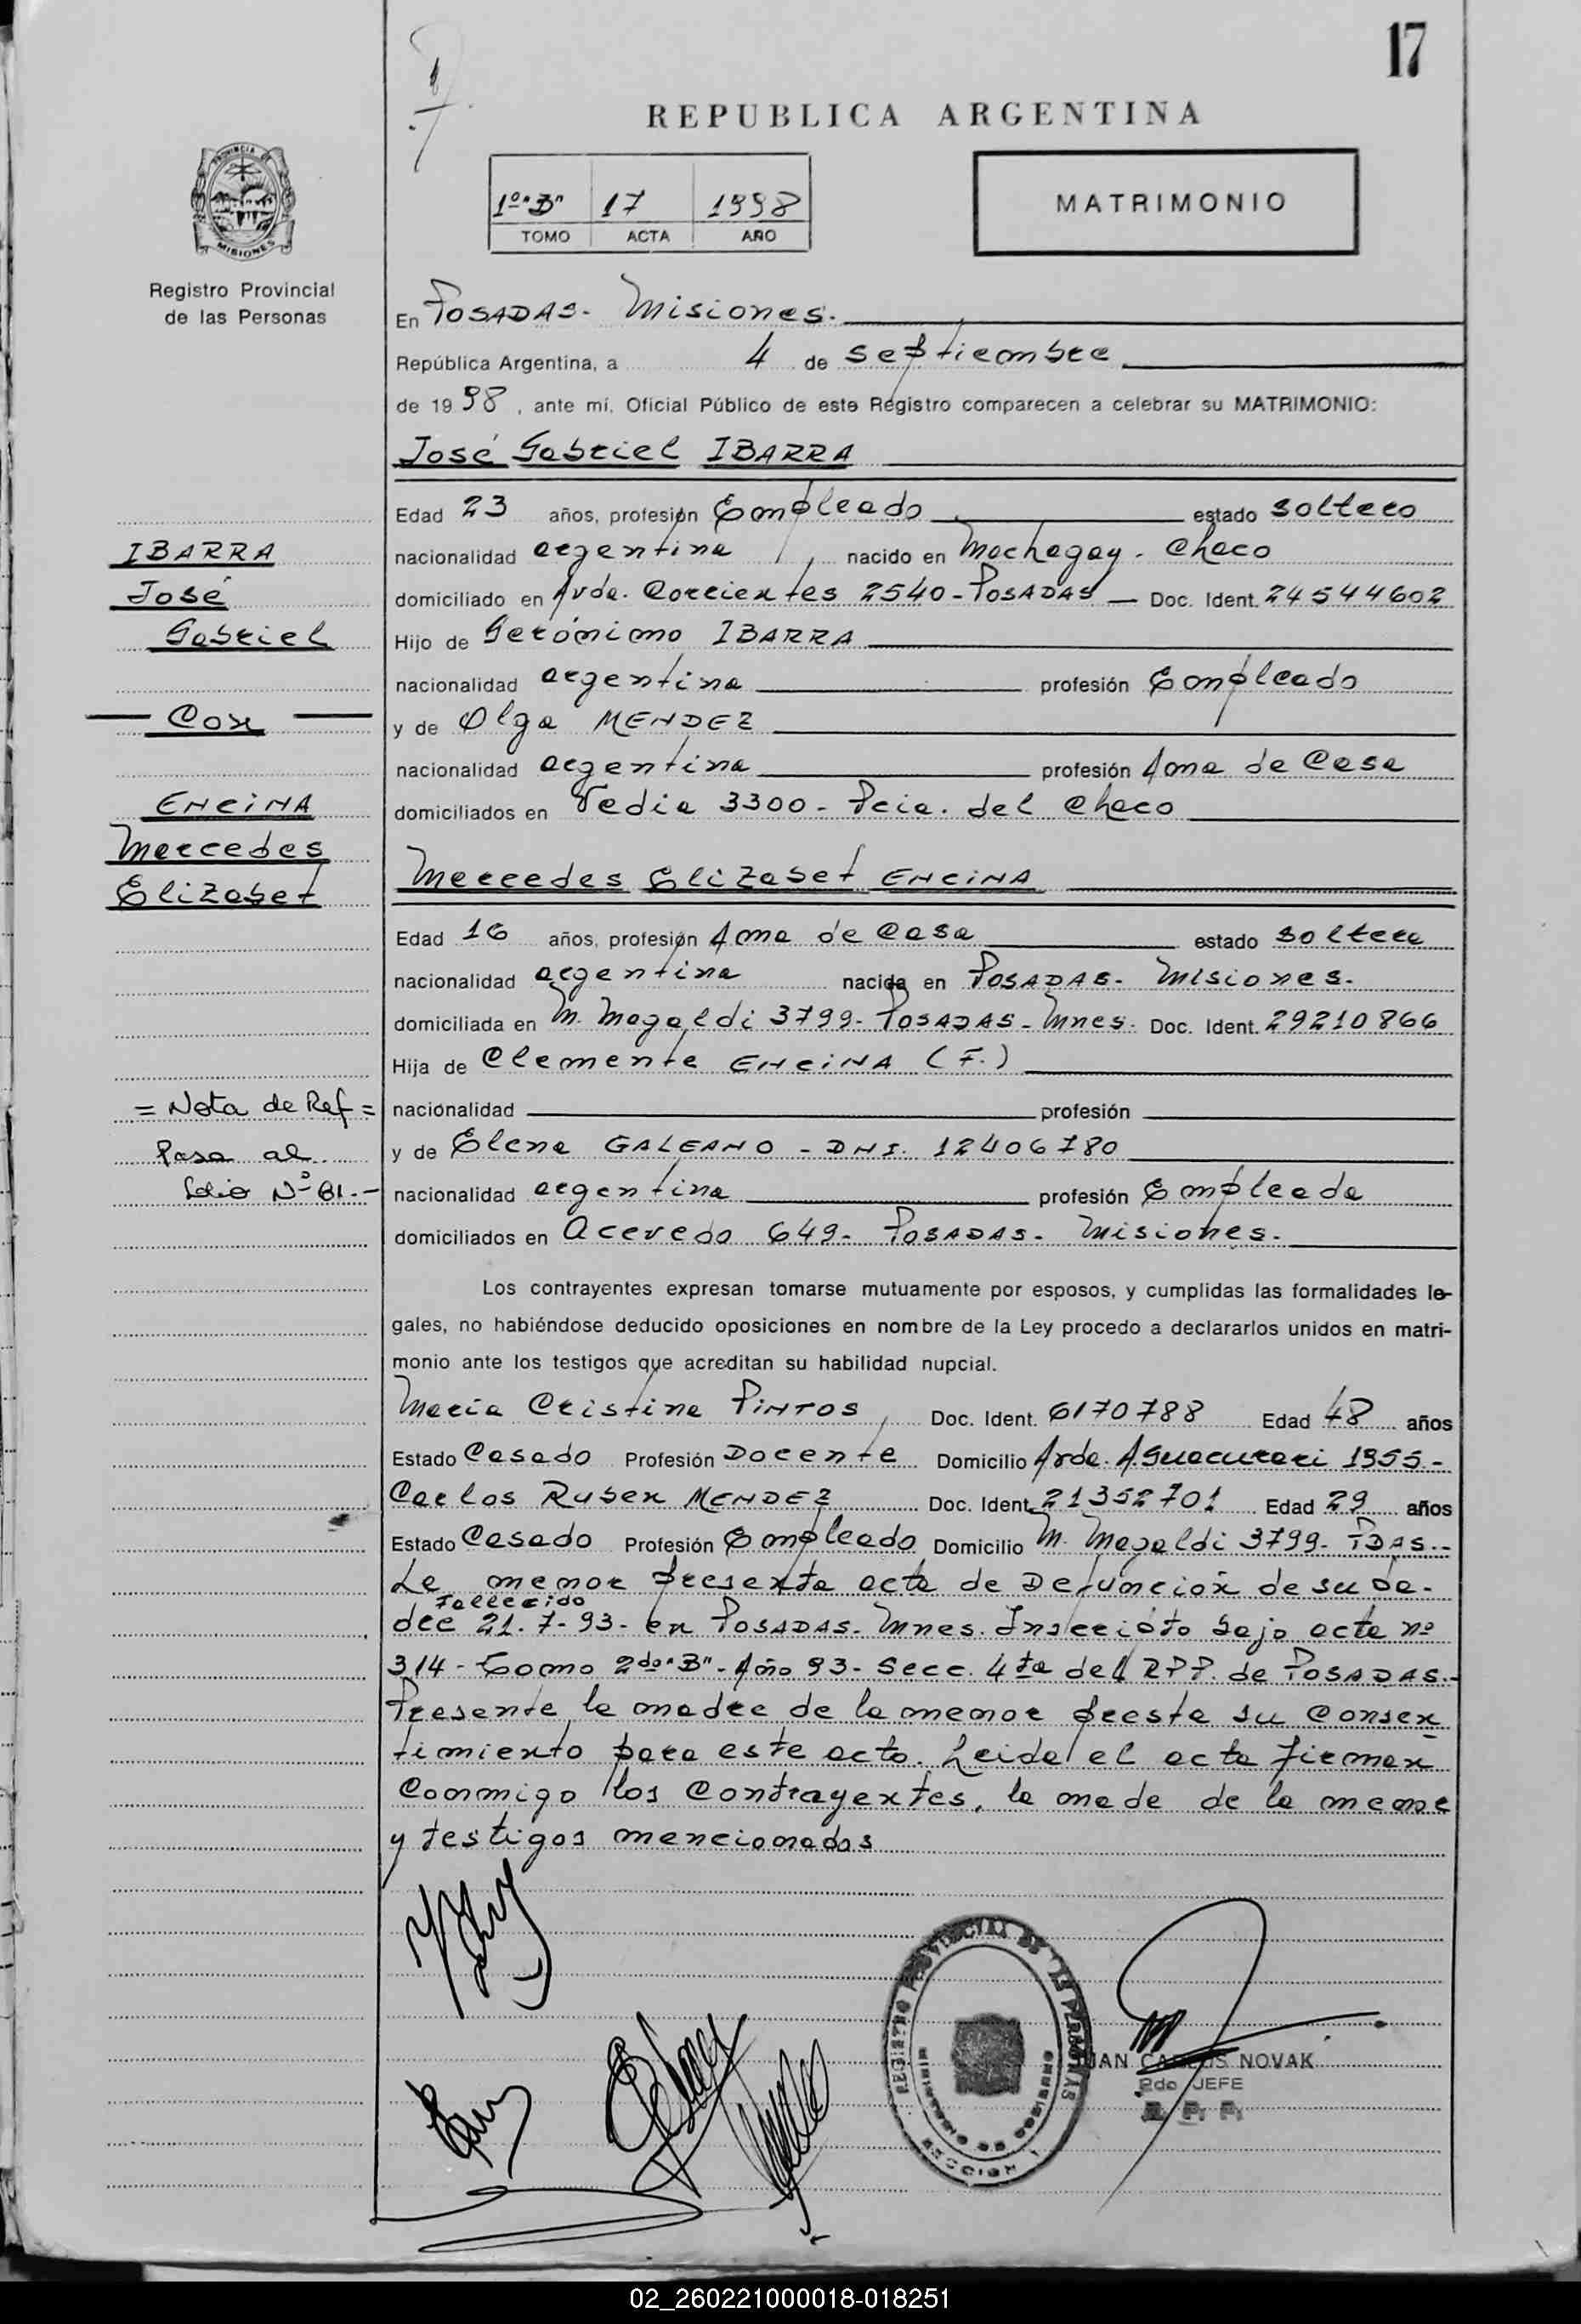 17
REPUBLICA ARGENTINA
PROVINCIA DE
MISIONES
Registro Provincial
de las Personas
1º "B" 17 1998
TOMO ACTA AÑO
MATRIMONIO
En POSADAS - Misiones.
República Argentina, a 4 de septiembre
de 1998, ante mí, Oficial Público de este Registro comparecen a celebrar su MATRIMONIO:
José Gabriel IBARRA
Edad 23 años, profesión Empleado estado soltero
nacionalidad argentina nacido en Machagay - Chaco
domiciliado en Avda. Corrientes 2540 - POSADAS — Doc. Ident. 24544602
Hijo de Gerónimo IBARRA
nacionalidad argentina profesión Empleado
y de Olga MENDEZ
nacionalidad argentina profesión Ama de Casa
domiciliados en Vedia 3300 - Pcia. del Chaco
Mercedes Elizabet ENCINA
Edad 16 años, profesión Ama de Casa estado soltera
nacionalidad argentina nacida en POSADAS - Misiones.
domiciliada en M. Magaldi 3799 - POSADAS - Mnes. Doc. Ident. 29210866
Hija de Clemente ENCINA (F.)
nacionalidad profesión
y de Elena GALEANO - DNI. 12406780
nacionalidad argentina profesión Empleada
domiciliados en Acevedo 649 - POSADAS - Misiones.
IBARRA
José
Gabriel
— Con —
ENCINA
Mercedes
Elizabet
= Nota de Ref =
Pasa al
folio Nº 81.-
Los contrayentes expresan tomarse mutuamente por esposos, y cumplidas las formalidades le-
gales, no habiéndose deducido oposiciones en nombre de la Ley procedo a declararlos unidos en matri-
monio ante los testigos que acreditan su habilidad nupcial.
María Cristina PINTOS, Doc. Ident. 6170788 Edad 48 años
Estado Casado Profesión Docente Domicilio Avda. A. Guacurari 1955.-
Carlos Ruben MENDEZ Doc. Ident. 21352701 Edad 29 años
Estado Casado Profesión Empleado Domicilio M. Magaldi 3799 - PDAS.-
La menor presenta acta de Defunción de su pa-
Fallecido
dre 21-7-93- en POSADAS - Mnes. Inscripto bajo acta nº
314 - Tomo 2do "B" - Año 93 - Secc. 4ta del RPP. de POSADAS.-
Presente la madre de la menor presta su Consen
timiento para este acto. Leida el acta firman
Conmigo los Contrayentes, la made de la menor
y testigos mencionados
REGISTRO PROVINCIAL DE LAS PERSONAS
MINISTERIO DE GOBIERNO
SECCION 1
JUAN CARLOS NOVAK
2do JEFE
02_260221000018-018251